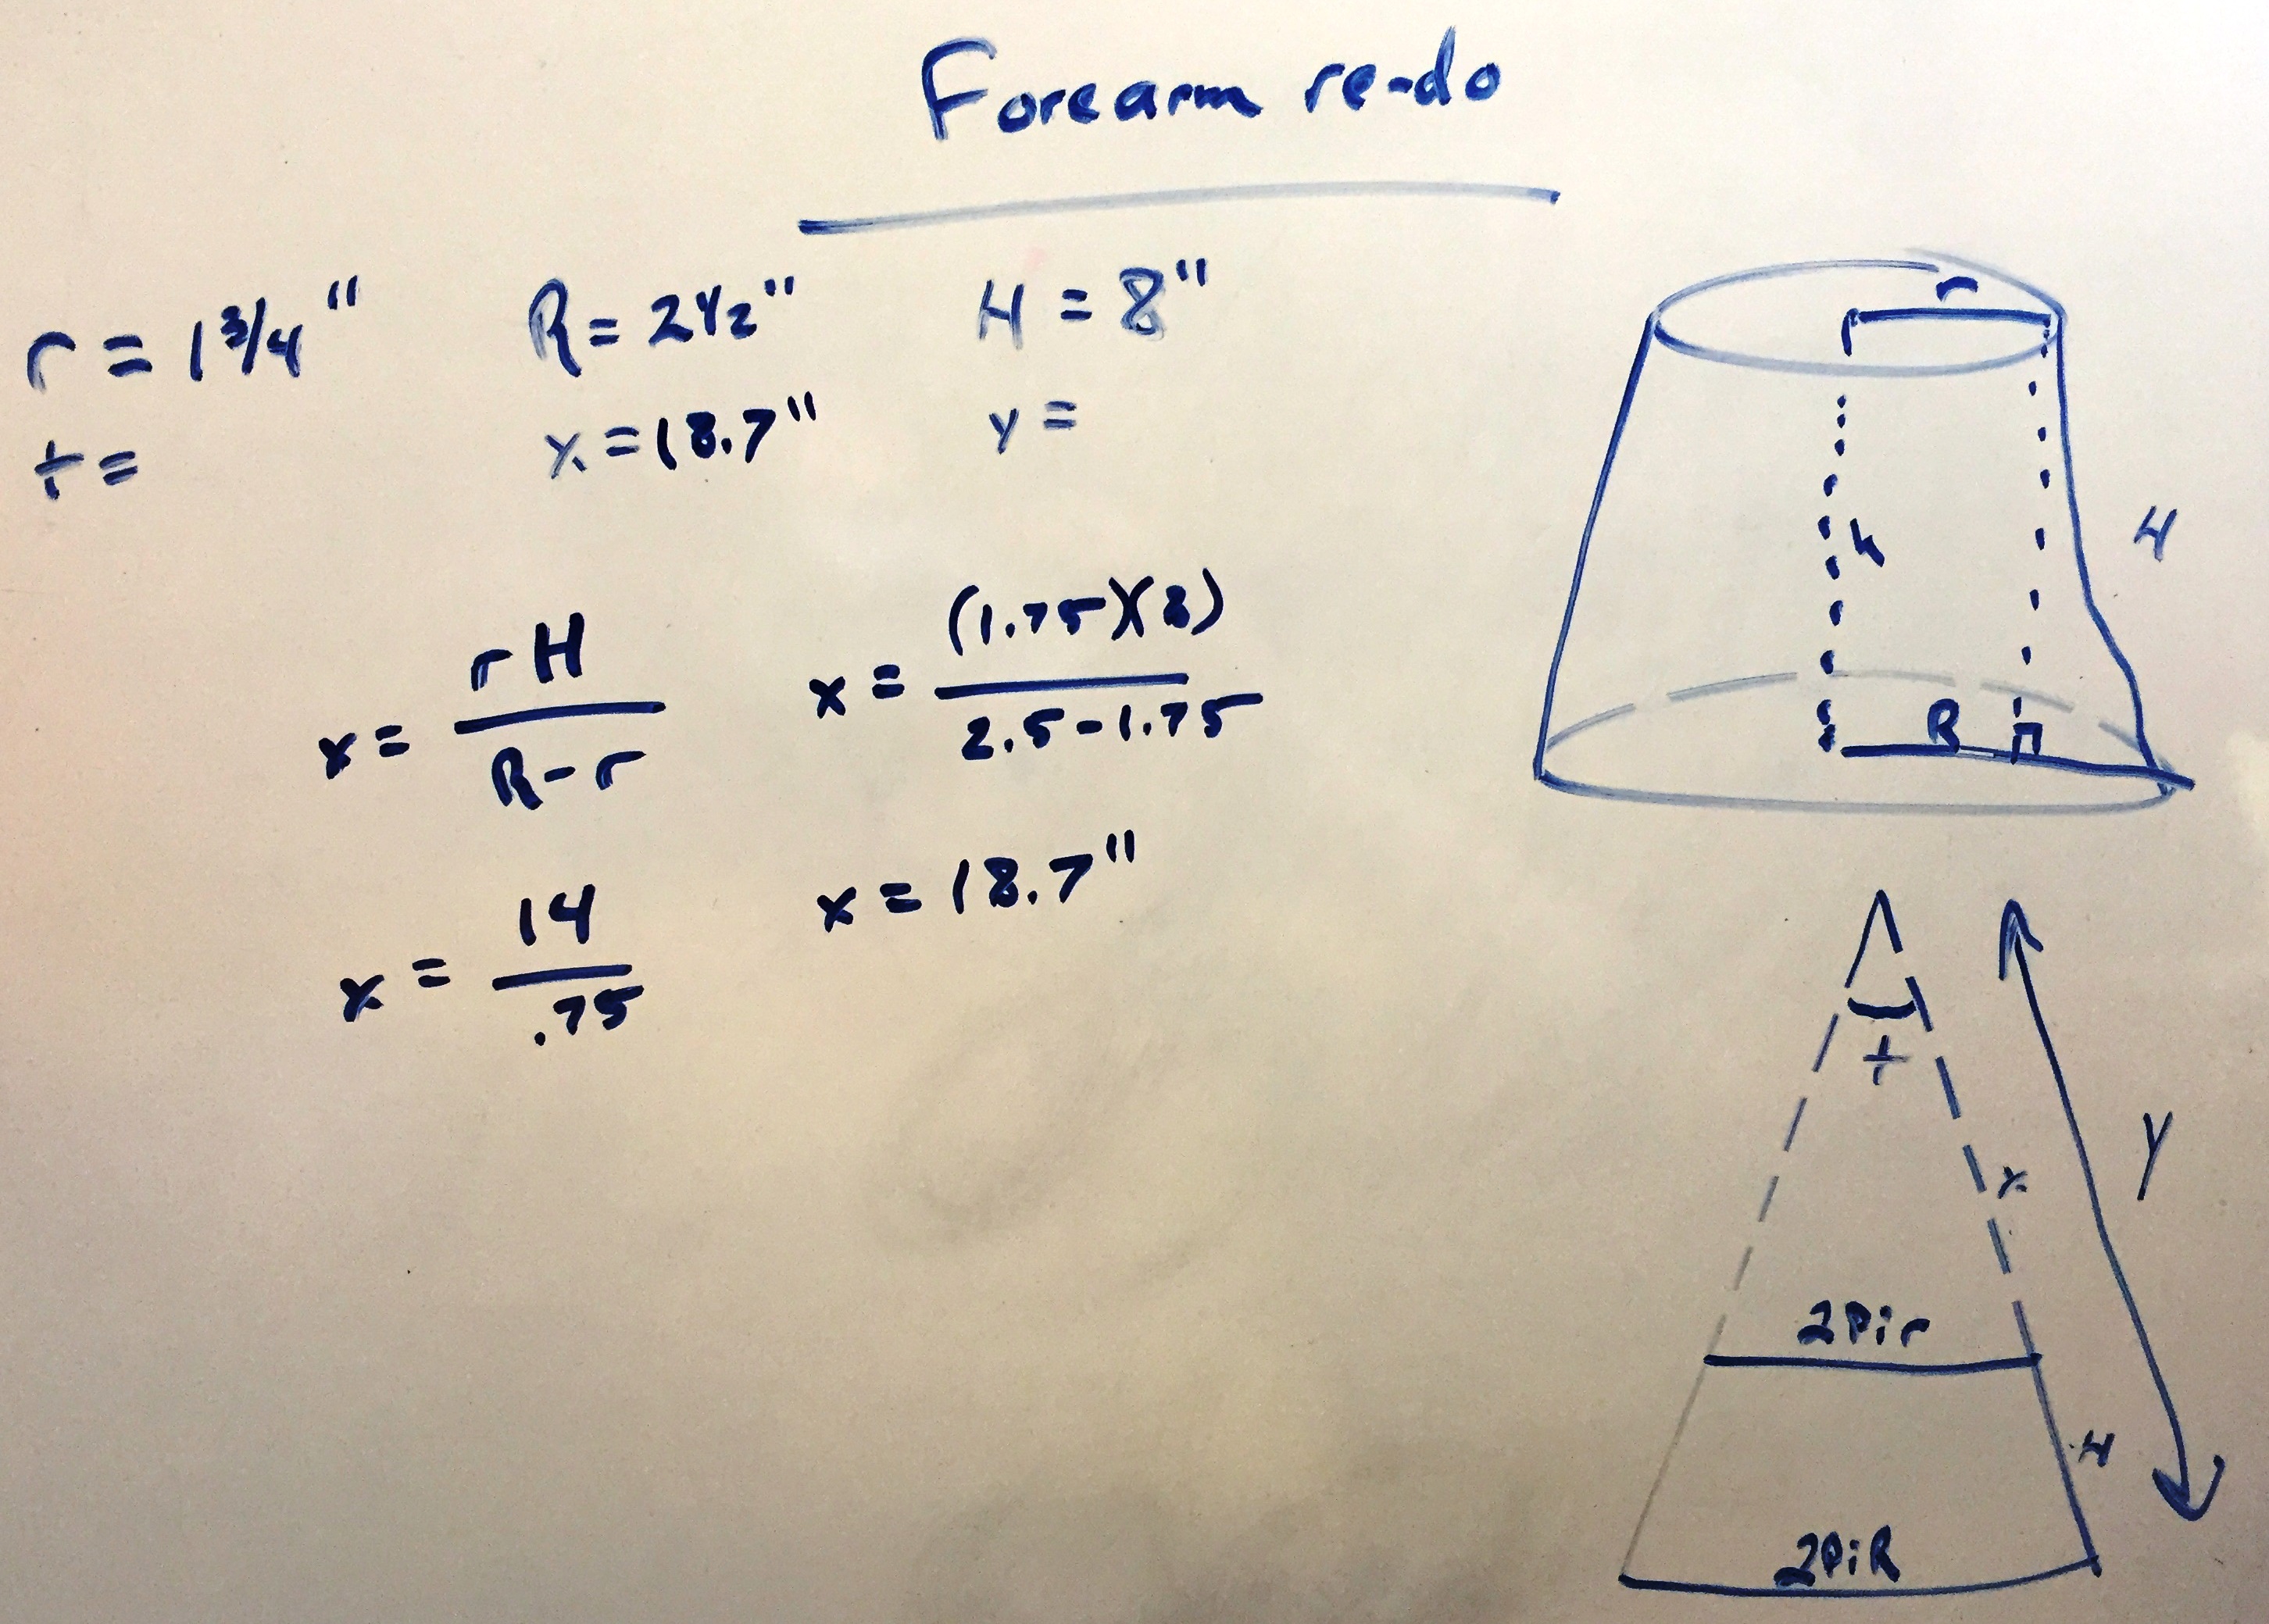 Forearm re-do
r = 1 3/4" R = 2 1/2" H = 8"
t = x = 18.7" y =
x = rH / R-r x = (1.75)(8) / 2.5-1.75
x = 14 / .75 x = 18.7"
r
h
H
R
t
x
y
2Pir
H
2PiR